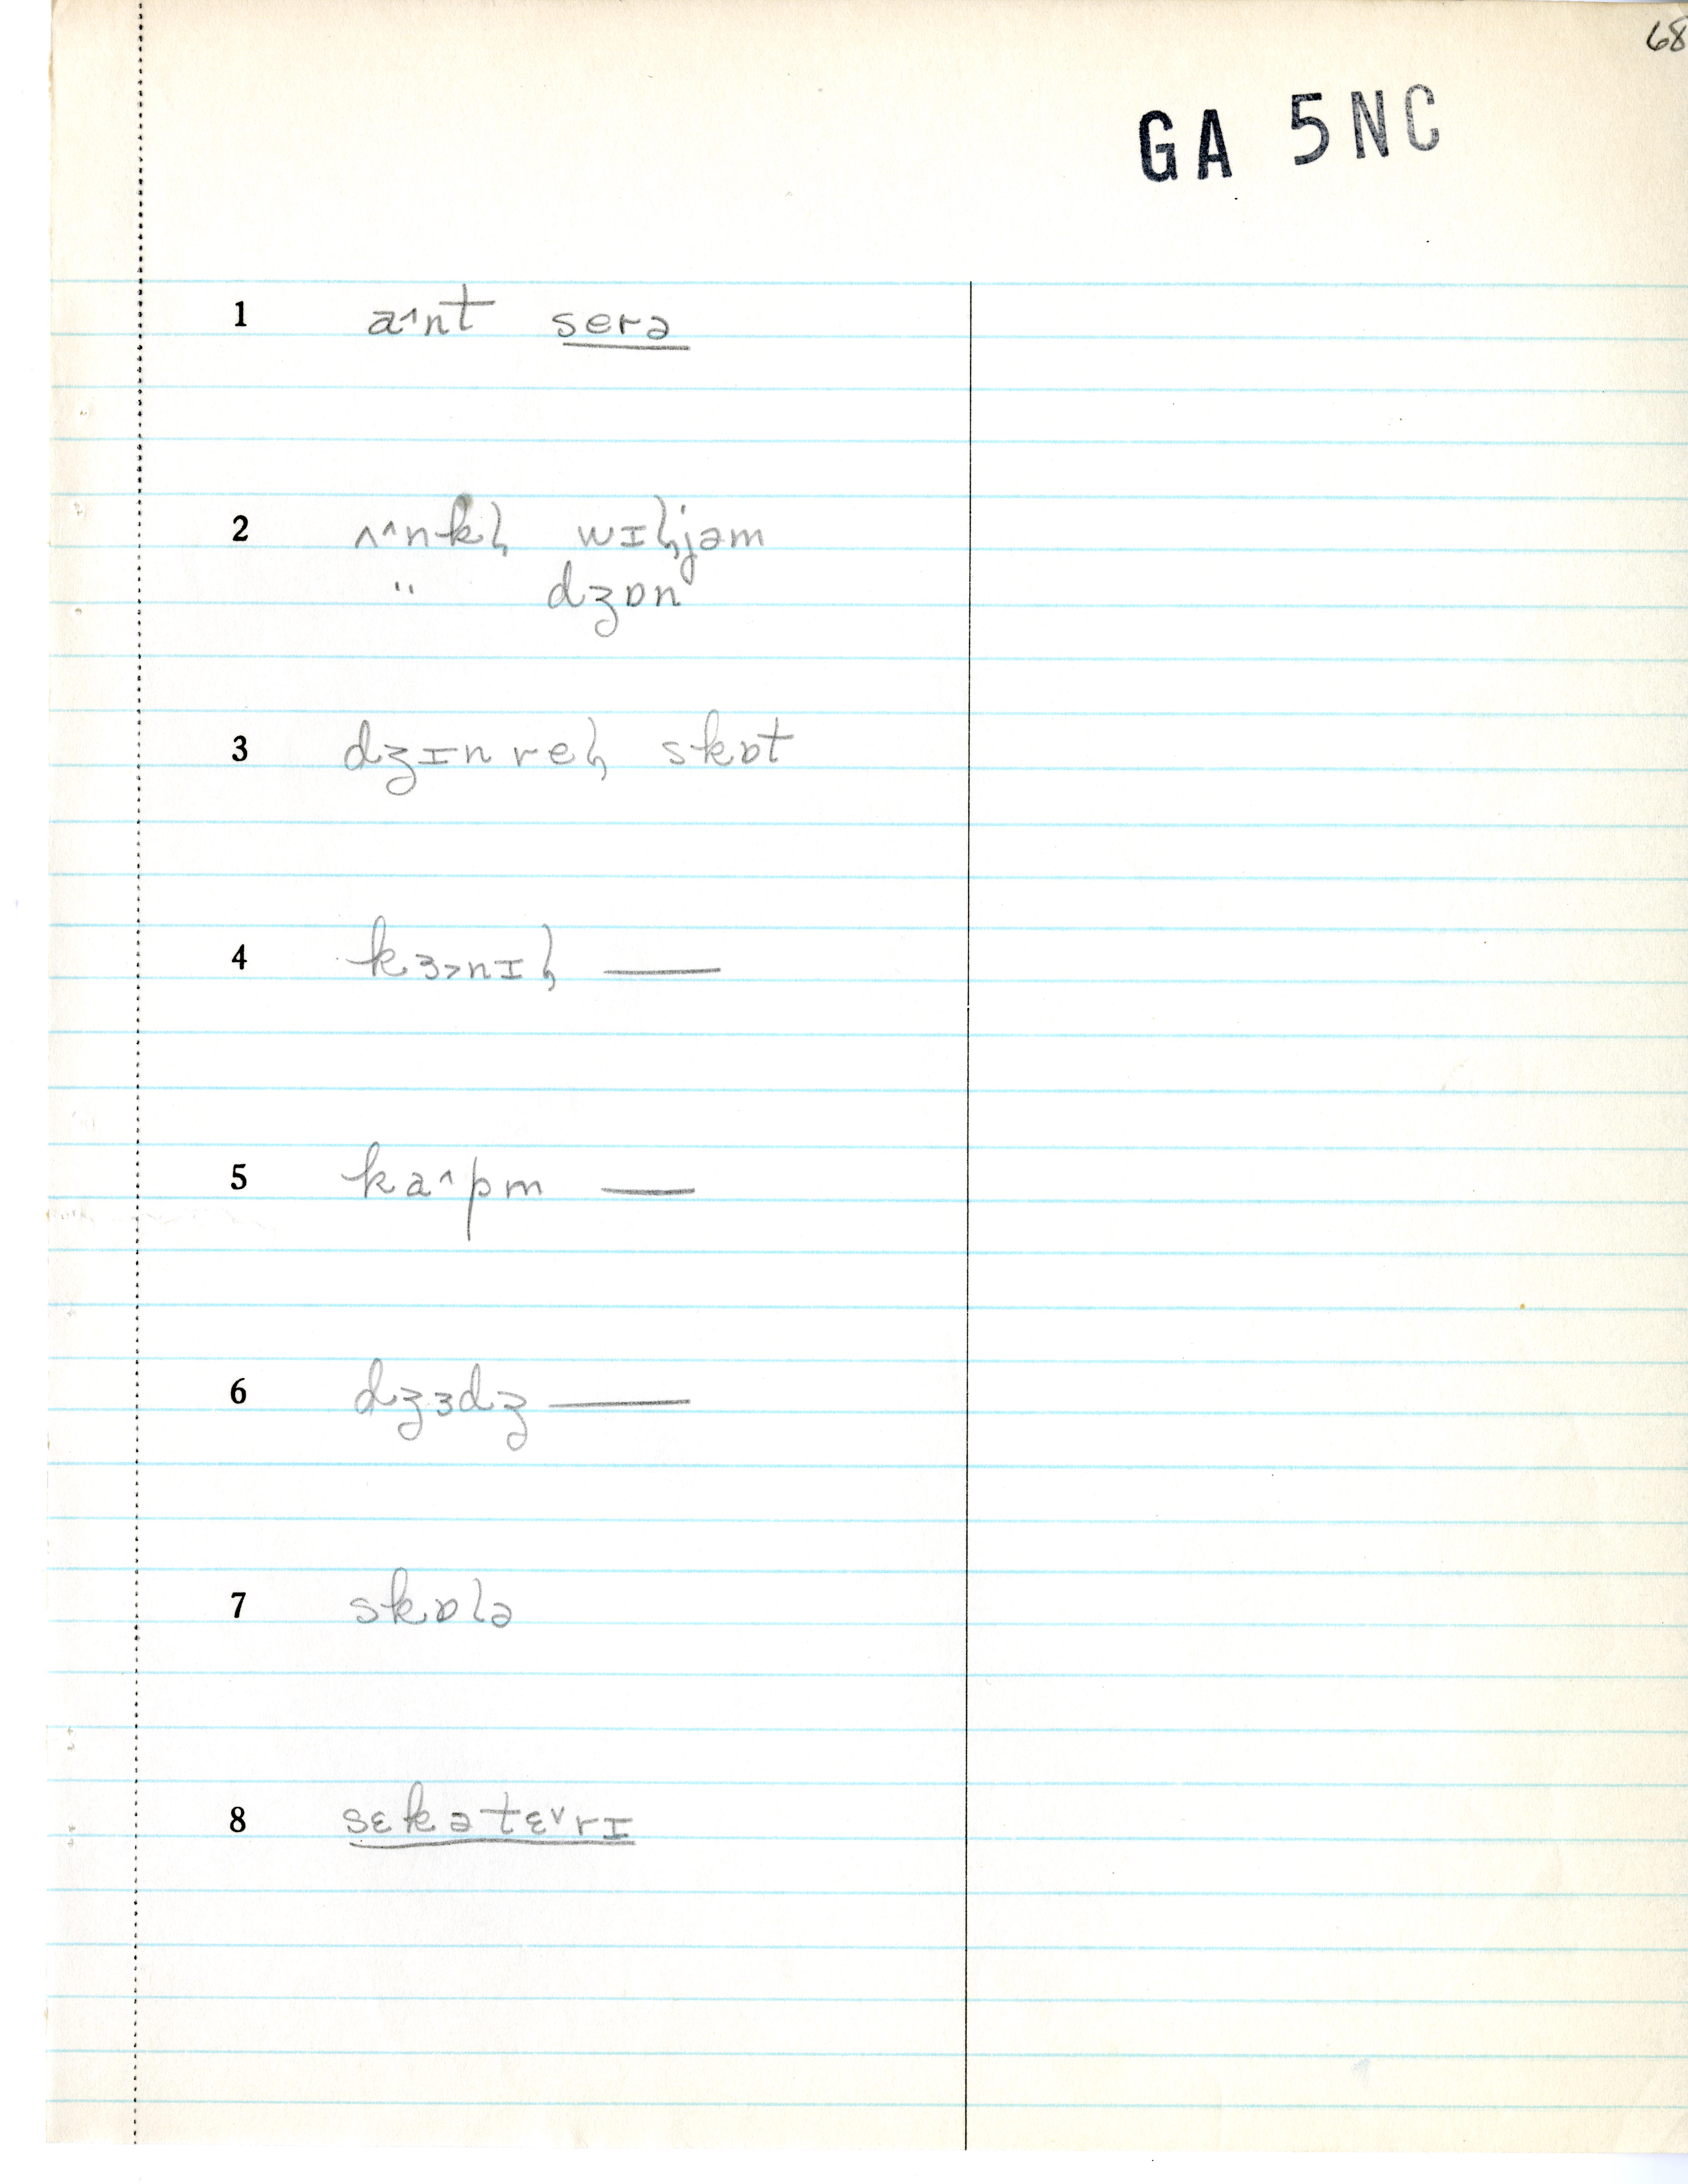 68
GA 5NC
1 a˄nt serə
2 ʌ˄nkɫ wɪɫjəm
" dʒɒn
3 dʒɪnreɫ skɒt
4 kɜ˃nɪɫ —
5 ka˄pm —
6 dʒɜdʒ —
7 skɒlə
8 sɛkətɛ˅rɪ